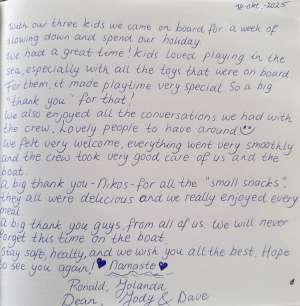 18-okt.-2025
With our three kids we came on board for a week of
slowing down and spend our holiday.
We had a great time! Kids loved playing in the
sea, especially with all the toys that were on board.
For them, it made playtime very special. So a big
"thank you" for that!
We also enjoyed all the conversations we had with
the crew. Lovely people to have around
We felt very welcome, everything went very smoothly
and the crew took very good care of us and the
boat.
A big thank you - Nikos - for all the "small snacks",
they all were delicious and we really enjoyed every
meal.
A big thank you guys, from all of us. We will never
forget this time on the boat
Stay safe, healty, and we wish you all the best. Hope
to see you again! ♥ Namaste ♥
Ronald, Yolanda,
Dean, Jody & Dave